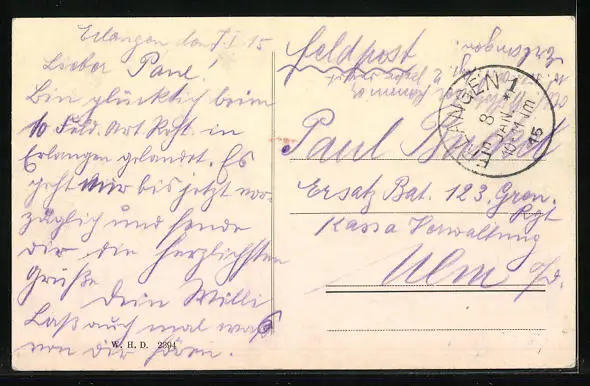 Erlangen, den 7.I.15
Lieber Paul!
Bin glücklich beim
10 Feld. Art Rgt. in
Erlangen gelandet. Es
geht mir bis jetzt vor-
züglich und sende
dir die herzlichsten
Grüße
Dein Willi
Laß auch mal was
von dir hören.
W. H. D. 2394
Feldpost
ERLANGEN 1
8 JAN.
10-11 Vm
15
Paul
Ersatz Bat. 123. Gren. Rgt
Kassa Verwaltung
Ulm a/d.